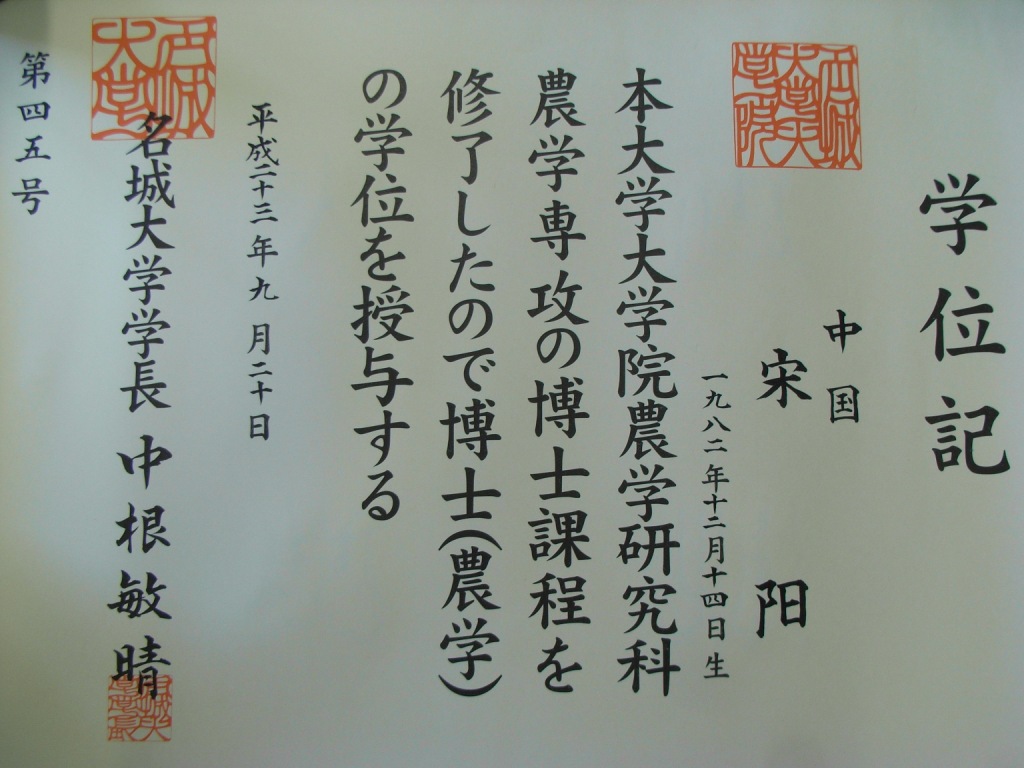 学位記
中国
宋 阳
一九八二年十二月十四日生
本大学大学院農学研究科
農学専攻の博士課程を
修了したので博士(農学)
の学位を授与する
平成二十三年九月二十日
名城大学学長 中根敏晴
第四五号